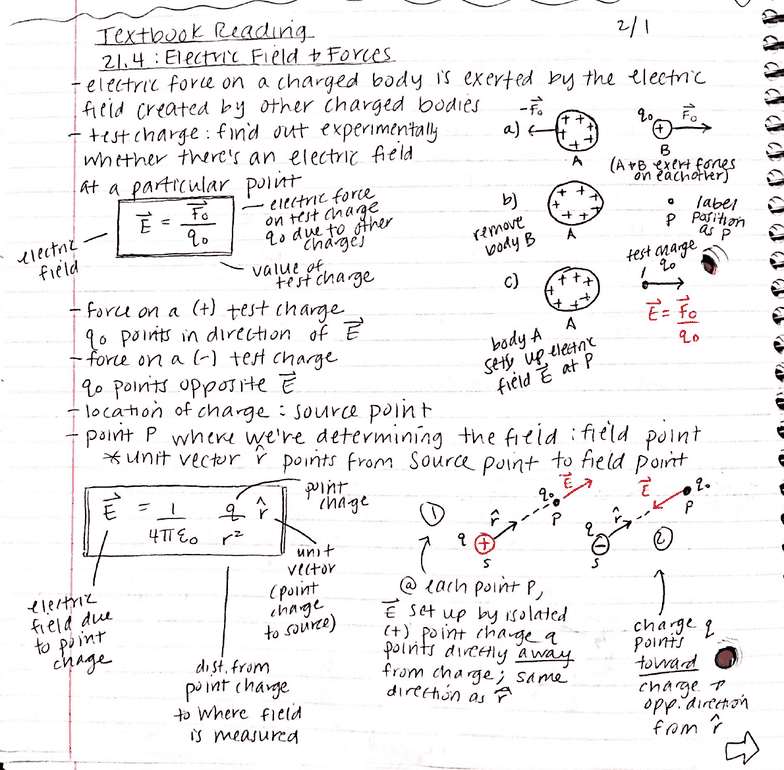 Textbook Reading
2/1
21.4: Electric Field & Forces
- electric force on a charged body is exerted by the electric
field created by other charged bodies
- test charge: find out experimentally
whether there's an electric field
at a particular point
E⃗ = F⃗₀ / q₀
electric field
electric force
on test charge
q₀ due to other
charges
value of
test charge
a)
-F⃗₀
+ + + + + +
A
q₀
+
F⃗₀
B
(A & B exert forces
on each other)
b)
remove
body B
+ + + + + +
A
P
label
position
as P
c)
+ + + + + +
A
body A
sets up electric
field E⃗ at P
test charge
q₀
E⃗ = F⃗₀ / q₀
- force on a (+) test charge
q₀ points in direction of E⃗
- force on a (-) test charge
q₀ points opposite E⃗
- location of charge: source point
- point P where we're determining the field: field point
*unit vector r̂ points from source point to field point
E⃗ = 1 / 4πε₀ q / r² r̂
point
chage
unit
vector
(point
charge
to source)
electric
field due
to point
chage
dist. from
point charge
to where field
is measured
1
q
+
S
r̂
q₀
P
E⃗
q
-
S
r̂
E⃗
q₀
P
2
@ each point P,
E⃗ set up by isolated
(+) point charge q
points directly away
from charge; same
direction as r̂
charge q
points
toward
charge →
opp. direction
from r̂